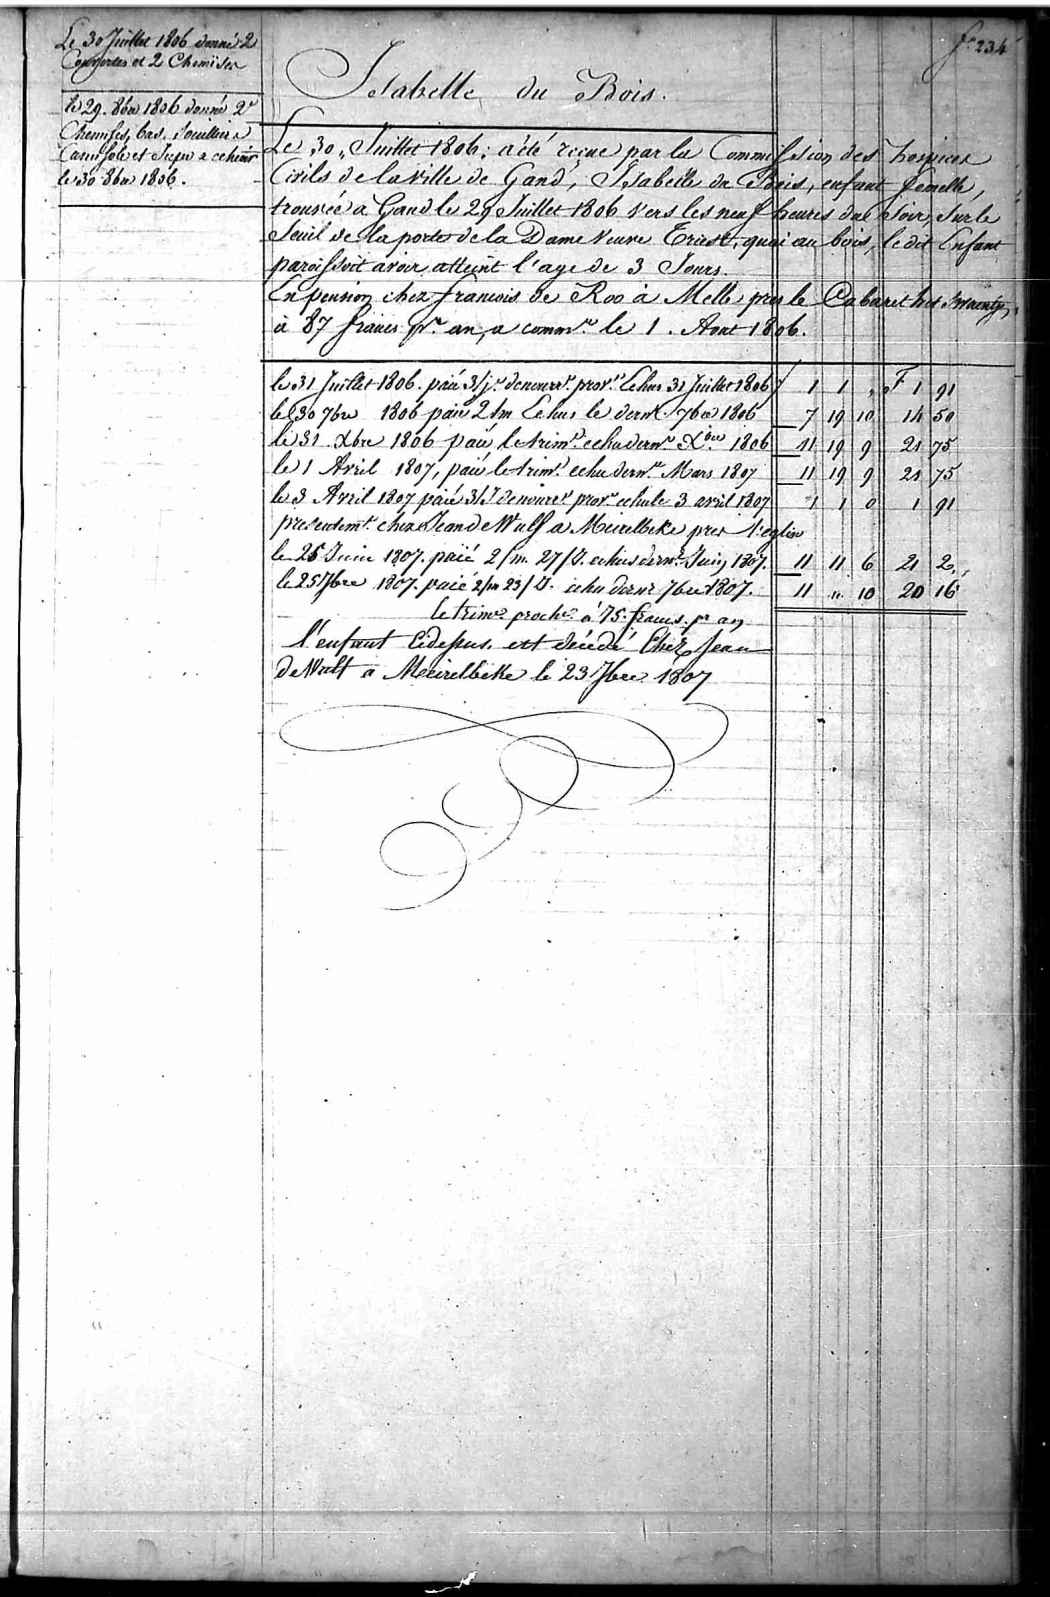 Le 30 Juillet 1806 donné 2
Couvertes et 2 Chemises
le 29. 8bre 1806 donné 2
Chemises, bas, Souillers
Camisole et Jupe
le 30 8bre 1806.
fo 234
Isabelle du Bois.
Le 30 „ Juillet 1806; a été reçue par la Commission des hospices
Civils de la ville de Gand, Isabelle du Bois, enfant femelle,
trouvée a Gand le 29 Juillet 1806 vers les neuf heures du Soir, Sur le
Seuil de la porte de la Dame veuve Triest, quai au bois, le dit Enfant
paroissoit avoir atteint l'age de 3 Jours.
En pension chez francois de Roo à Melle pres le Cabaret het
à 87 francs pr an, a commcé le 1. Aout 1806.
le 31 Juillet 1806. paié 3/js de nourre provre Echus 31 Juillet 1806 1 1 „ F 1 91
le 30 7bre 1806 paié 2/m Echus le dernr 7bre 1806 7 19 10 14 50
le 31 Xbre 1806 paié le trimre echu dernr Xbre 1806 11 19 9 21 75
le 1 Avril 1807, paié le trimre echu dernr Mars 1807 11 19 9 21 75
le 3 Avril 1807 paié 3/J de nourre provre echu le 3 avril 1807 1 1 0 1 91
presentemt chez Jean de Wulf a Meirelbeke pres l'eglise
le 25 Juin 1807. paié 2/m 27/J. echus dernr Juin 1807. 11 11 6 21 2
le 25 7bre 1807. paié 2/m 23/J. echu dernr 7bre 1807. 11 „ 10 20 16
le trimre proche à 75 francs pr an
l'enfant Cidessus est décédé Chez Jean
de Wulf a Meirelbeke le 23 7bre 1807